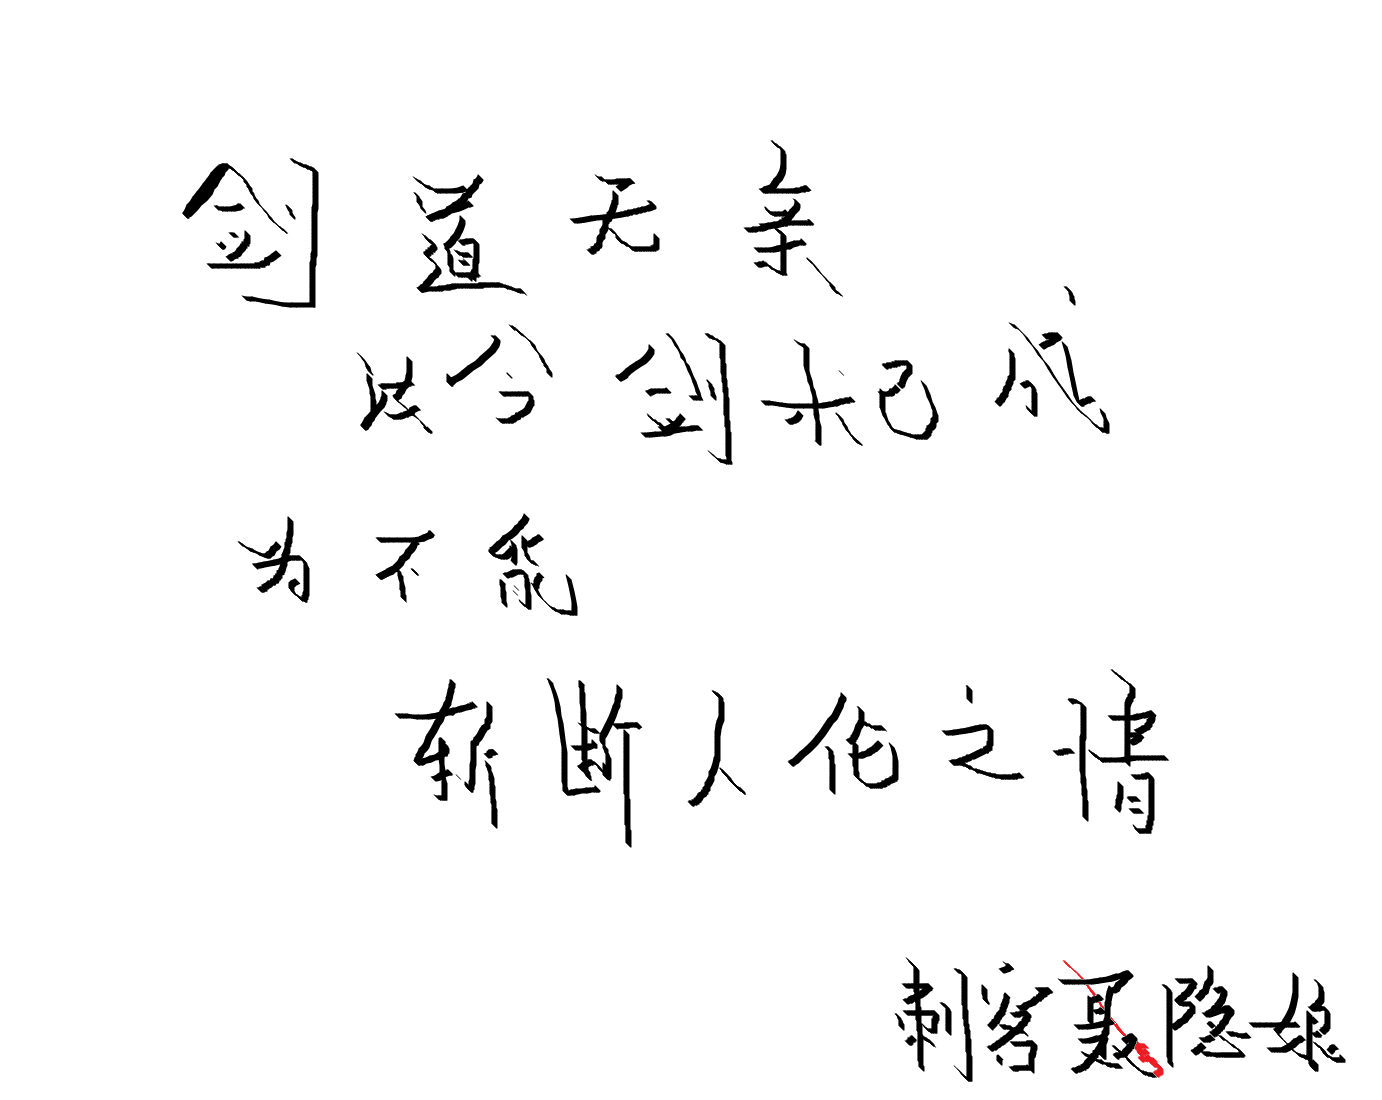 剑道无亲
汝今剑术已成
为不能
斩断人伦之情
刺客聂隐娘